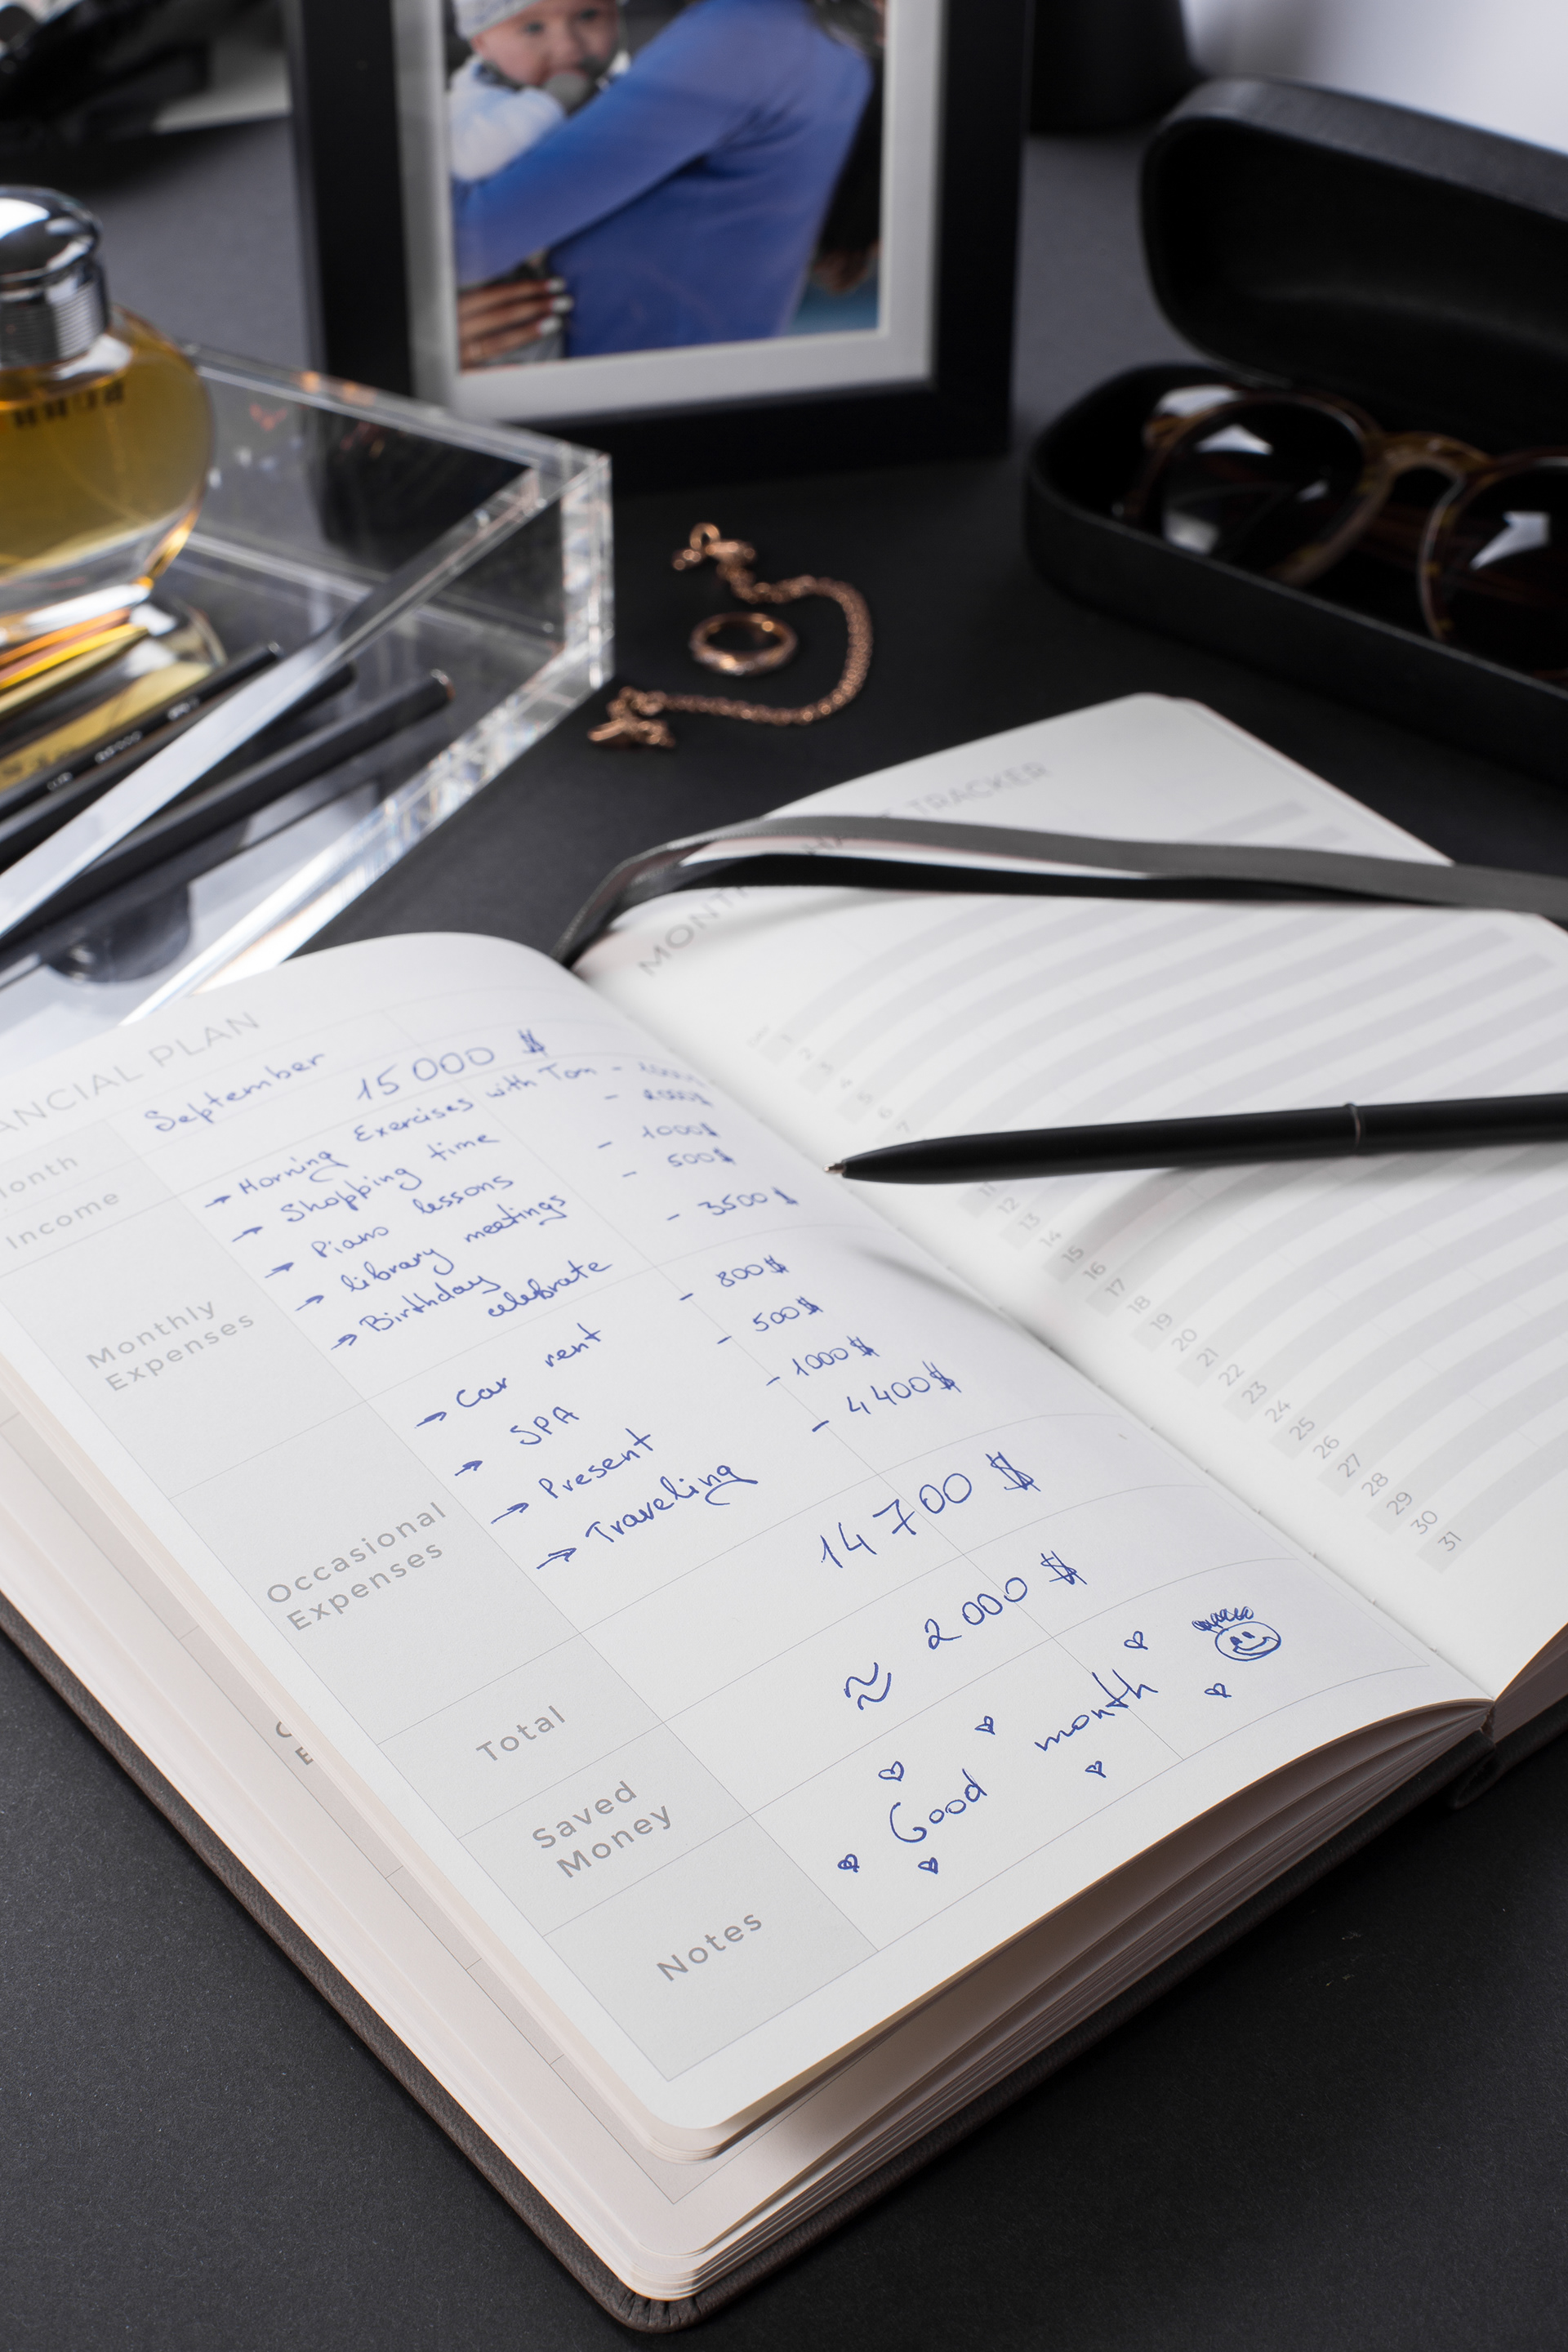 ANCIAL PLAN
onth September
Income 15 000 $
Monthly
Expenses
→ Morning Exercises with Tom -
→ Shopping time - 2000$
→ Piano lessons - 1000$
→ library meetings - 500$
→ Birthday
celebrate - 3500 $
Occasional
Expenses
→ Car rent - 800$
→ SPA - 500$
→ Present - 1000$
→ Traveling - 4 400$
Total 14 700 $
Saved
Money
≈ 2 000 $
Notes
Good month
MONT TRACKER
1
2
3
4
5
6
7
11
12
13
14
15
16
17
18
19
20
21
22
23
24
25
26
27
28
29
30
31